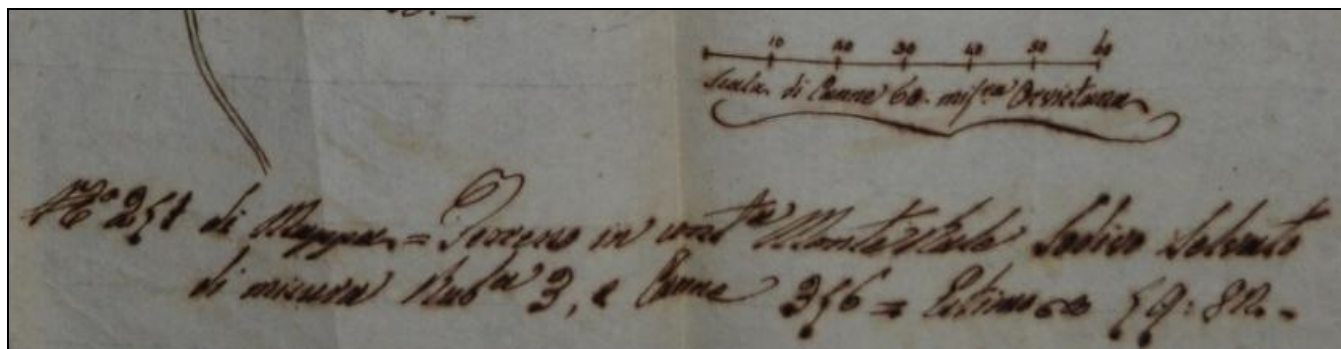 10 20 30 40 50 60
Scala di Canne 60. misra Orvietana
No 251 di Mappa = Terreno in contta Monte Rale Sodivo Selvato
di misura Rubla 3, e Canne 356 = Estimo 59:82.